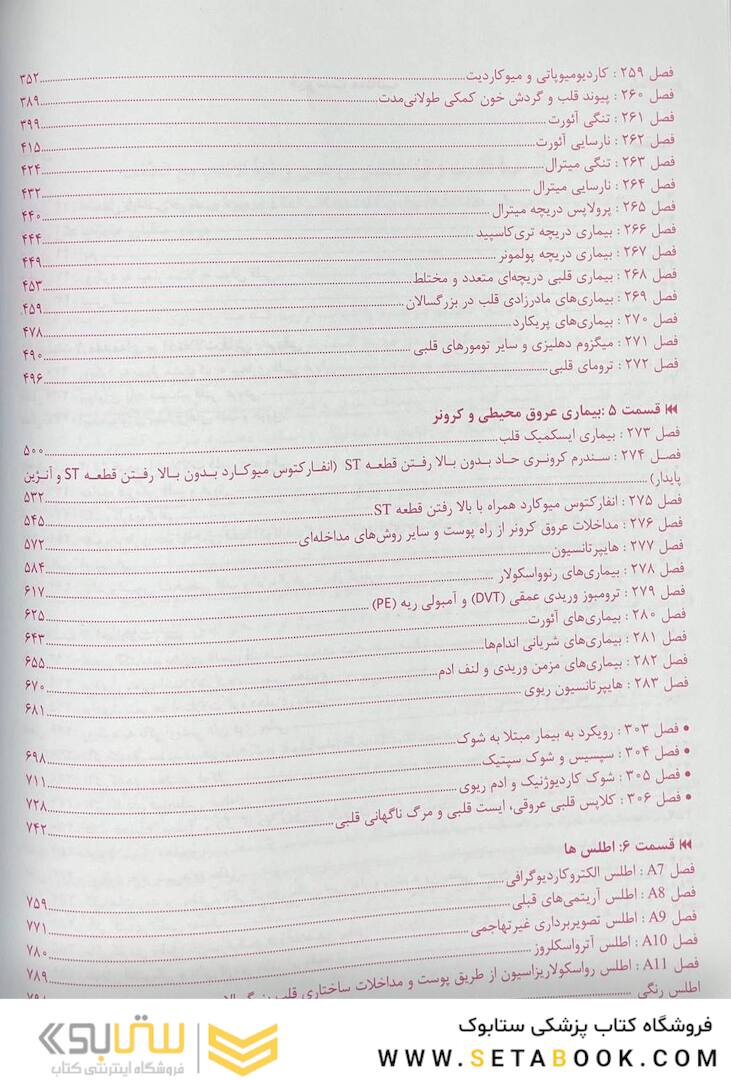 فصل ۲۵۹ : کاردیومیوپاتی و میوکاردیت........۳۵۲
فصل ۲۶۰ : پیوند قلب و گردش خون کمکی طولانی‌مدت........۳۸۹
فصل ۲۶۱ : تنگی آئورت........۳۹۹
فصل ۲۶۲ : نارسایی آئورت........۴۱۵
فصل ۲۶۳ : تنگی میترال........۴۲۴
فصل ۲۶۴ : نارسایی میترال........۴۳۲
فصل ۲۶۵ : پرولاپس دریچه میترال........۴۴۰
فصل ۲۶۶ : بیماری دریچه تری‌کاسپید........۴۴۴
فصل ۲۶۷ : بیماری دریچه پولمونر........۴۴۹
فصل ۲۶۸ : بیماری قلبی دریچه‌ای متعدد و مختلط........۴۵۳
فصل ۲۶۹ : بیماری‌های مادرزادی قلب در بزرگسالان........۴۵۹
فصل ۲۷۰ : بیماری‌های پریکارد........۴۷۸
فصل ۲۷۱ : میگزوم دهلیزی و سایر تومورهای قلبی........۴۹۰
فصل ۲۷۲ : ترومای قلبی........۴۹۶
قسمت ۵ :بیماری عروق محیطی و کرونر
فصل ۲۷۳ : بیماری ایسکمیک قلب........۵۰۰
فصل ۲۷۴ : سندرم کرونری حاد بدون بالا رفتن قطعه ST (انفارکتوس میوکارد بدون بالا رفتن قطعه ST و آنژین
پایدار)........۵۳۲
فصل ۲۷۵ : انفارکتوس میوکارد همراه با بالا رفتن قطعه ST........۵۴۵
فصل ۲۷۶ : مداخلات عروق کرونر از راه پوست و سایر روش‌های مداخله‌ای........۵۷۲
فصل ۲۷۷ : هایپرتانسیون........۵۸۴
فصل ۲۷۸ : بیماری‌های رنوواسکولار........۶۱۷
فصل ۲۷۹ : ترومبوز وریدی عمقی (DVT) و آمبولی ریه (PE)........۶۲۵
فصل ۲۸۰ : بیماری‌های آئورت........۶۴۳
فصل ۲۸۱ : بیماری‌های شریانی اندام‌ها........۶۵۵
فصل ۲۸۲ : بیماری‌های مزمن وریدی و لنف ادم........۶۷۰
فصل ۲۸۳ : هایپرتانسیون ریوی........۶۸۱
• فصل ۳۰۳ : رویکرد به بیمار مبتلا به شوک........۶۹۸
• فصل ۳۰۴ : سپسیس و شوک سپتیک........۷۱۱
• فصل ۳۰۵ : شوک کاردیوژنیک و ادم ریوی........۷۲۸
• فصل ۳۰۶ : کلاپس قلبی عروقی، ایست قلبی و مرگ ناگهانی قلبی........۷۴۲
قسمت ۶: اطلس ها
فصل A7 : اطلس الکتروکاردیوگرافی........۷۵۹
فصل A8 : اطلس آریتمی‌های قبلی........۷۷۱
فصل A9 : اطلس تصویربرداری غیرتهاجمی........۷۸۰
فصل A10 : اطلس آترواسکلروز........۷۸۹
فصل A11 : اطلس رواسکولاریزاسیون از طریق پوست و مداخلات ساختاری قلب
اطلس رنگی
فروشگاه کتاب پزشکی ستابوک
WWW.SETABOOK.COM
ستابوک
فروشگاه اینترنتی کتاب